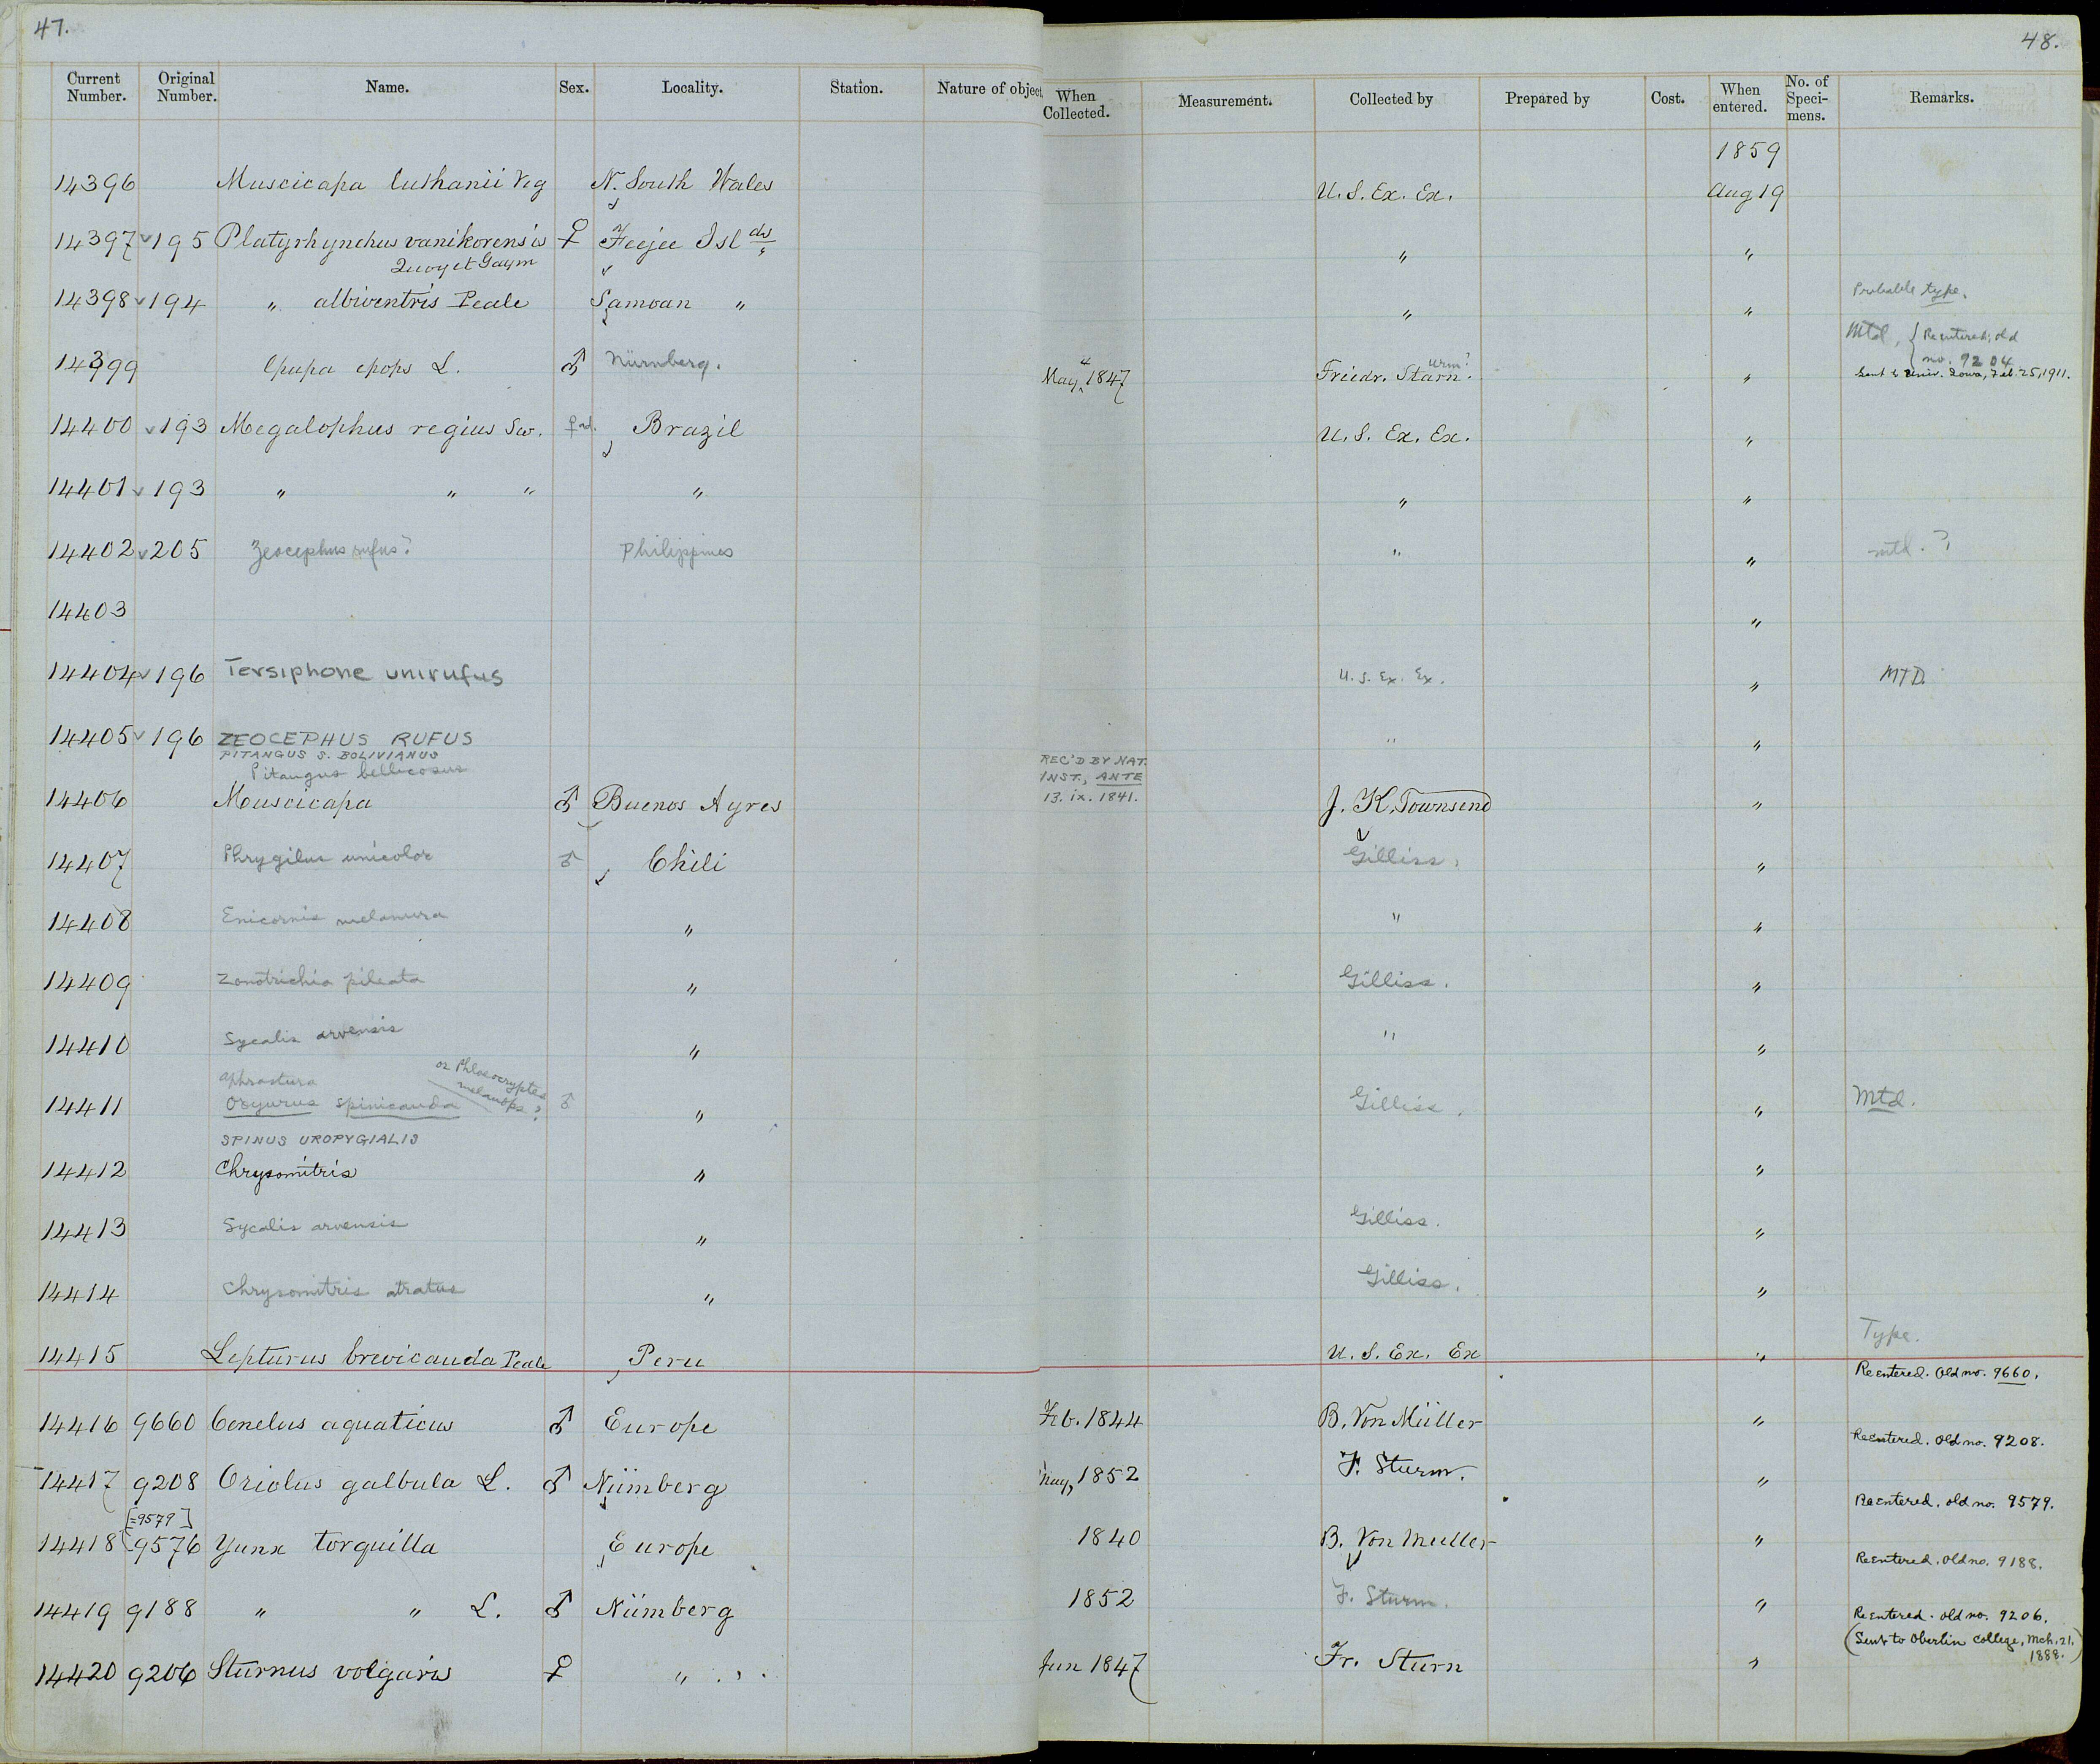 47.
48.
Current Number. Original Number. Name. Sex. Locality. Station. Nature of object When Collected. Measurement. Collected by Prepared by Cost. When entered. No. of Speci- mens. Remarks.
1859
14396 Muscicapa luthanii Vig N. South Wales U. S. Ex. Ex. Aug 19
14397 195 Platyrhynchus vanikorensis ♀ Feejee Isl ds " "
Quoy et Gaym
Probable type.
14398 194 " albiventris Peale Samoan " " "
Mtd, { Reentered; old
no. 9204
14399 Upupa epops L. ♂ Nürnberg. May 4 1847 Friedr. Starn. urm? " Sent to Univ. Iowa, Feb. 25, 1911.
14400 193 Megalophus regius Sw. ♀ad. Brazil U. S. Ex. Ex. "
14401 193 " " " " " "
14402 205 Zeocephus rufus? Philippines " " mtd. ?
14403 "
14404 196 Tersiphone unirufus U. S. Ex. Ex. " MTD.
14405 196 ZEOCEPHUS RUFUS " "
PITANGUS S. BOLIVIANUS REC'D BY NAT.
Pitangus bellicosus INST., ANTE
14406 Muscicapa ♂ Buenos Ayres 13. ix. 1841. J. K. Townsend "
14407 Phrygilus unicolor ♂ Chili Gilliss. "
14408 Enicornis melanura " " "
14409 Zonotrichia pileata " Gilliss. "
14410 Sycalis arvensis " " "
Aphrastura or Phloeocryptes melanops ?
14411 Oxyurus spinicauda ♂ " Gilliss. " Mtd.
SPINUS UROPYGIALIS
14412 Chrysomitris " "
14413 Sycalis arvensis " Gilliss. "
14414 Chrysomitris atratus " Gilliss. "
Type.
14415 Lepturus brevicauda Peale Peru U. S. Ex. Ex "
Reentered. Old no. 9660.
14416 9660 Cenclus aquaticus ♂ Europe Feb. 1844 B. Von Müller "
Reentered. Old no. 9208.
14417 9208 Oriolus galbula L. ♂ Nürnberg May, 1852 F. Sturm. "
[=9579] Reentered. old no. 9579.
14418 9576 Yunx torquilla Europe 1840 B. Von Mueller "
Reentered. Old no. 9188.
14419 9188 " " L. ♂ Nürnberg 1852 F. Sturm. "
Reentered. old no. 9206.
(Sent to Oberlin College, Mch. 21, 1888.)
14420 9206 Sturnus volgaris ♀ " Jun 1847 Fr. Sturn "